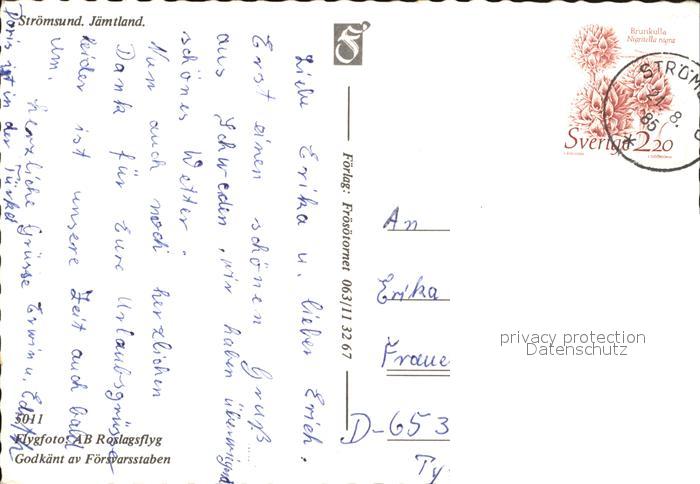 Strömsund. Jämtland.
Brunkulla
Nigritella nigra
STRÖMS
21.8.
85
Sverige 2.20
Liebe Erika u. lieber Erich.
Erst einen schönen Gruß
aus Schweden, wir haben überwiegend
schönes Wetter.
Nun auch noch herzlichen
Dank für Eure Urlaubsgrüsse
leider ist unsere Zeit auch bald
um.
Herzliche Grüsse Erwin u. Edith
Doris ist in der Türkei
Förlag: Frösötornet 063/11 32 67
An
Erika
Fraue
D-653
privacy protection
Datenschutz
5011
Flygfoto: AB Roslagsflyg
Godkänt av Försvarsstaben